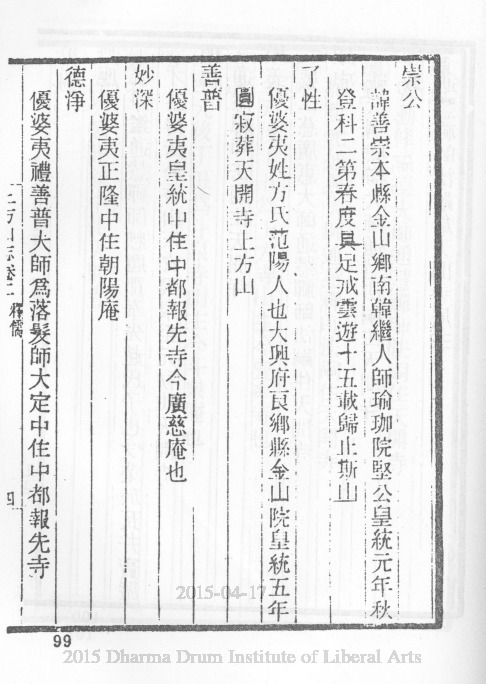 崇公
諱善崇本縣金山鄉南韓繼人師瑜珈院堅公皇統元年秋
登科二第春度具足戒雲遊十五載歸止斯山
了性
優婆夷姓方氏范陽人也大興府良鄉縣金山院皇統五年
圓寂葬天開寺上方山
善普
優婆夷皇統中住中都報先寺今廣慈庵也
妙深
優婆夷正隆中住朝陽庵
德淨
優婆夷禮善普大師爲落髮師大定中住中都報先寺
上方山志卷二 釋儒 四
2015-04-17
99
2015 Dharma Drum Institute of Liberal Arts